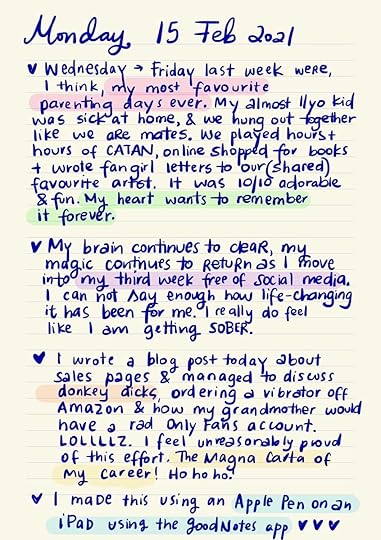 Monday, 15 Feb 2021
♥ Wednesday → Friday last week were,
I think, my most favourite
parenting days ever. My almost 11yo kid
was sick at home, & we hung out together
like we are mates. We played hours +
hours of CATAN, online shopped for books
+ wrote fangirl letters to our (shared)
favourite artist. It was 10/10 adorable
& fun. My heart wants to remember
it forever.
♥ My brain continues to cleaR, my
magic continues to Return as I move
into my third week free of social media.
I can not say enough how life-changing
it has been for me. I really do feel
like I am getting SOBER.
♥ I wrote a blog post today about
sales pages & managed to discuss
donkey dicks, ordering a vibrator off
Amazon & how my grandmother would
have a rad Only Fans account.
LOLLLLZ. I feel unreasonably proud
of this effort. The Magna Carta of
my career! Ho ho ho.
♥ I made this using an Apple Pen on an
iPad using the GoodNotes app ♥ ♥ ♥